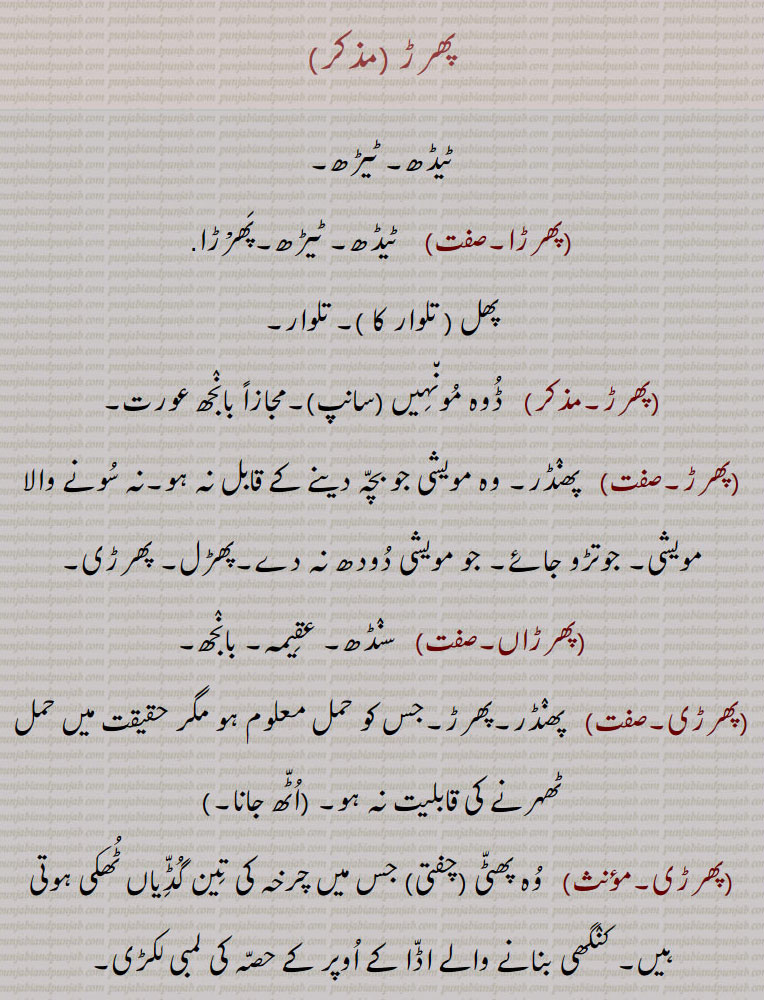 پھرڑ (مذکر)
ٹیڈھ۔ ٹیڑھ۔
(پھرڑا۔صفت) ٹیڈھ۔ ٹیڑھ۔پَھرْڑا.
پھل ( تلوار کا )۔ تلوار۔
(پھرڑ۔مذکر) ڈُوہ مُونّہِیں (سانپ)۔مجازاً بان٘جھ عورت۔
(پھرڑ۔صفت) پھن٘ڈر۔ وہ مویشی جو بچّہ دینے کے قابل نہ ہو۔نہ سُونے والا
مویشی۔ جوتڑو جائے۔ جو مویشی دُودھ نہ دے۔پھڑل۔ پھرڑی۔
(پھرڑاں۔صفت) سن٘ڈھ۔ عقِیمہ۔ بان٘جھ۔
(پھرڑی۔صفت) پھن٘ڈر۔پھرڑ۔جس کو حمل معلوم ہو مگر حقیقت میں حمل
ٹھہرنے کی قابلیت نہ ہو۔ (اُٹّھ جانا۔)
(پھرڑی۔مؤنث) وُہ پھٹّی (چفتی) جس میں چرخہ کی تِین گُڈِّیاں ٹُھکی ہوتی
ہیں۔ کن٘گھی بنانے والے اڈّا کے اُوپر کے حصّہ کی لمبی لکڑی۔